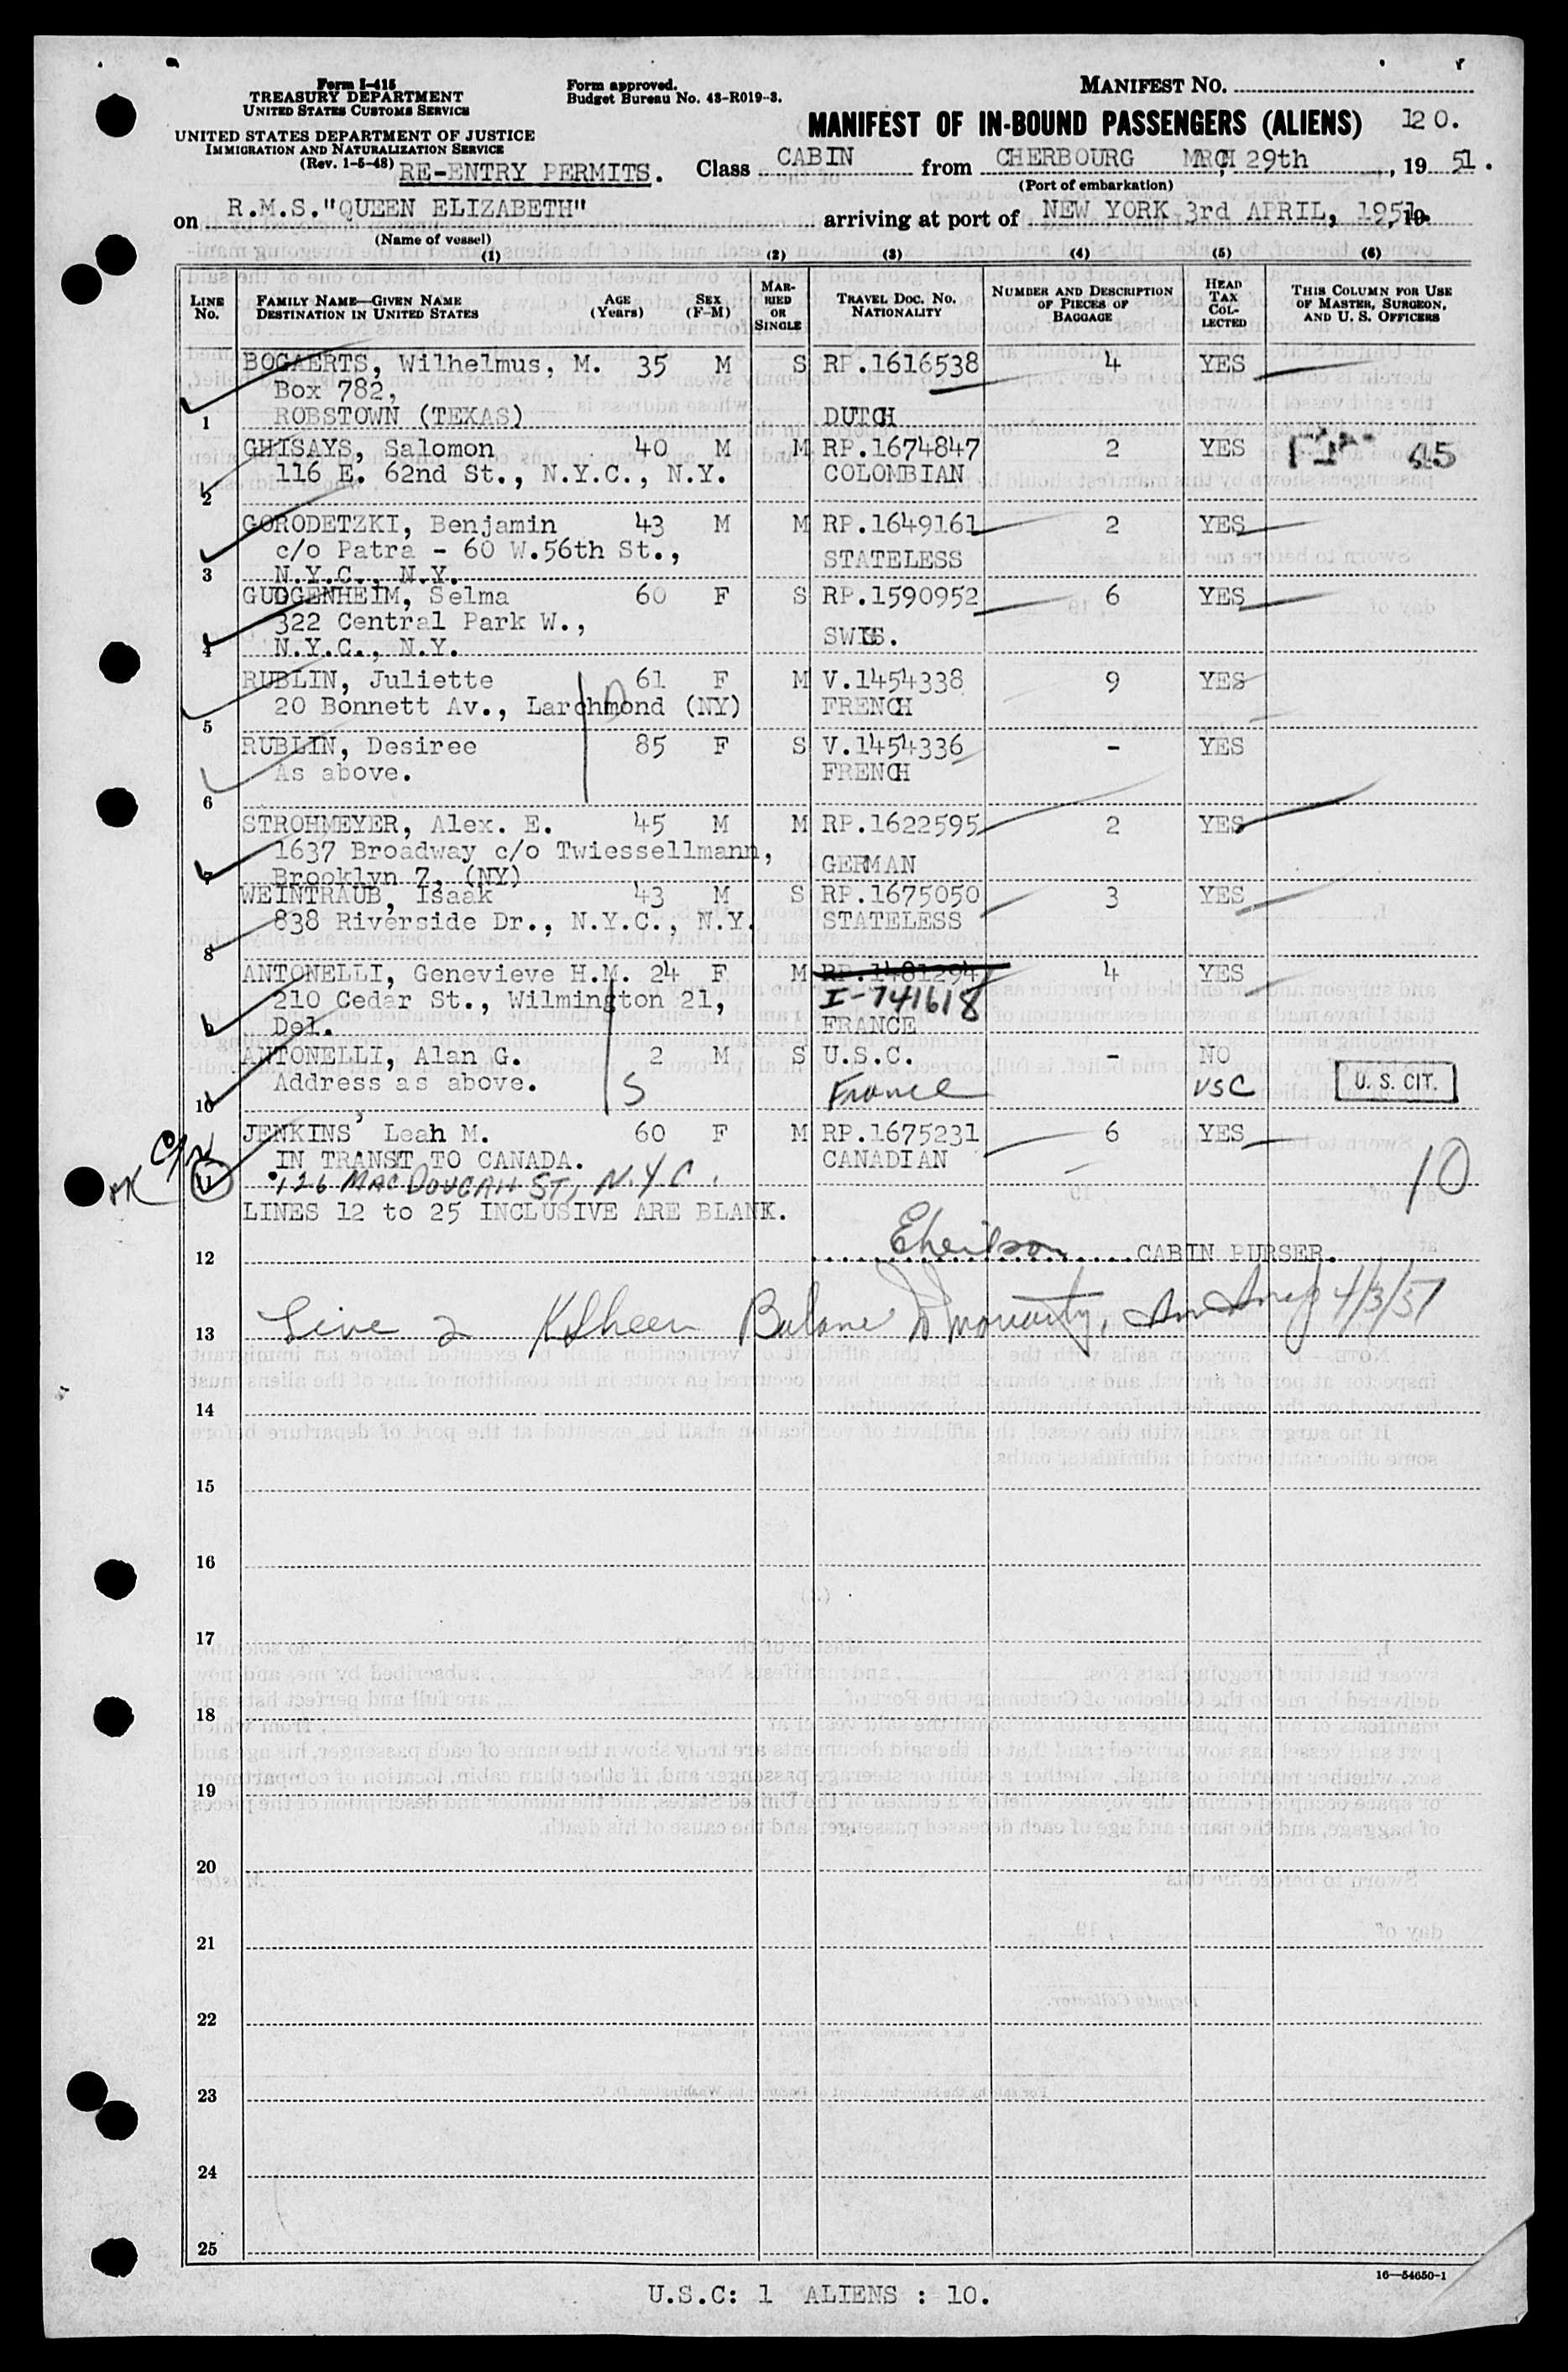 Form I-415
TREASURY DEPARTMENT
UNITED STATES CUSTOMS SERVICE
UNITED STATES DEPARTMENT OF JUSTICE
IMMIGRATION AND NATURALIZATION SERVICE
(Rev. 1-5-48) RE-ENTRY PERMITS.
Form approved.
Budget Bureau No. 43-R019-3.
MANIFEST NO.
MANIFEST OF IN-BOUND PASSENGERS (ALIENS) 120.
Class CABIN from CHERBOURG MRCH, 29th, 19 51.
(Port of embarkation)
on R.M.S."QUEEN ELIZABETH" arriving at port of NEW YORK 3rd APRIL, 1951.
(Name of vessel)
(1) (2) (3) (4) (5) (6)
LINE No. FAMILY NAME—GIVEN NAME DESTINATION IN UNITED STATES AGE (Years) SEX (F-M) MARRIED OR SINGLE TRAVEL DOC. NO. NATIONALITY NUMBER AND DESCRIPTION OF PIECES OF BAGGAGE HEAD TAX COLLECTED THIS COLUMN FOR USE OF MASTER, SURGEON, AND U. S. OFFICERS
BOGAERTS, Wilhelmus, M. 35 M S RP.1616538 4 YES
Box 782,
1 ROBSTOWN (TEXAS) DUTCH
GHISAYS, Salomon 40 M M RP.1674847 2 YES 45
116 E. 62nd St., N.Y.C., N.Y. COLOMBIAN
2
GORODETZKI, Benjamin 43 M M RP.1649161 2 YES
c/o Patra - 60 W.56th St., STATELESS
3 N.Y.C., N.Y.
GUGGENHEIM, Selma 60 F S RP.1590952 6 YES
322 Central Park W., SWISS.
4 N.Y.C., N.Y.
RUBLIN, Juliette 61 F M V.1454338 9 YES
20 Bonnett Av., Larchmond (NY) FRENCH
5
RUBLIN, Desiree 85 F S V.1454336 - YES
As above. FRENCH
6
STROHMEYER, Alex. E. 45 M M RP.1622595 2 YES
1637 Broadway c/o Twiessellmann, GERMAN
7 Brooklyn 7, (NY)
WEINTRAUB, Isaak 43 M S RP.1675050 3 YES
838 Riverside Dr., N.Y.C., N.Y. STATELESS
8
ANTONELLI, Genevieve H.M. 24 F M RP.1481294 4 YES
210 Cedar St., Wilmington 21, I-741618
9 Del. FRANCE
ANTONELLI, Alan G. 2 M S U.S.C. - NO
Address as above. S France USC U. S. CIT.
10
JENKINS, Leah M. 60 F M RP.1675231 6 YES
IN TRANST TO CANADA. CANADIAN 10
OK 11 126 MACDOUGAH ST, N.Y.C.
LINES 12 to 25 INCLUSIVE ARE BLANK.
12 CABIN PURSER.
13 Line 2 Balance Moriarty, 4/3/51
14
15
16
17
18
19
20
21
22
23
24
25
16—54650-1
U.S.C: 1 ALIENS : 10.